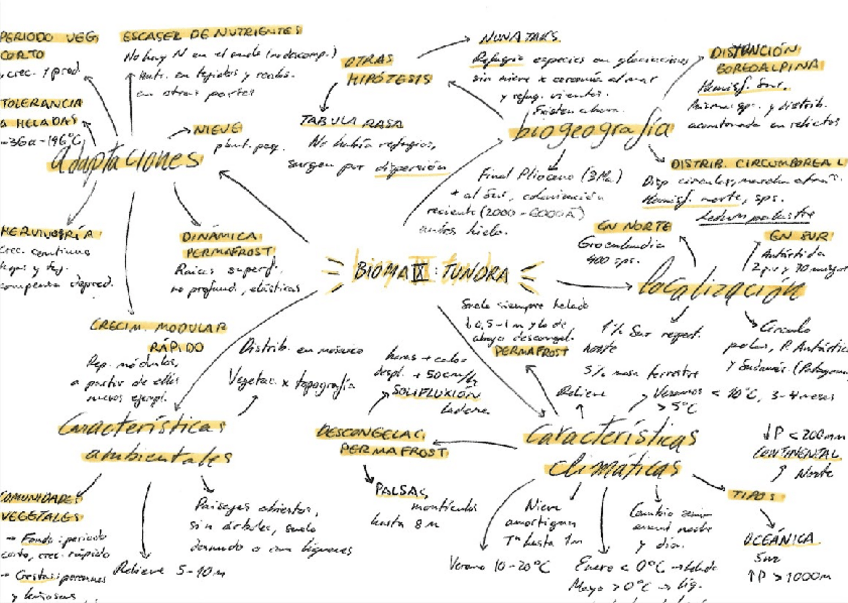 PERIODO VEG.
CORTO
crec. y prod.
ESCASER DE NUTRIENTES
No hay N en el suelo (no descomp.)
Nutr. en tejidos y
en otras partes
TOLERANCIA
A HELADAS
-36 a -196°C
NIEVE
plant. peq.
adaptaciones
OTRAS
HIPÓTESIS
TABULA RASA
No había refugios,
surgen por dispersión
NUNATAKS
Refugio especies en glaciaciones
sin nieve x cercanía al mar
y refug. vientos.
Existen ahora.
biogeografía
DISYUNCIÓN
BOREOALPINA
Hemisf. Sur.
Misma sp. y distrib.
acantonada en relictos
DISTRIB. CIRCUMBOREAL
Disp circular,
Hemisf. norte, sps.
Ledum palustre
Final Plioceno (3Ma)
+ al Sur, colonización
reciente (2000-6000A)
antes hielo.
HERVIVORÍA
crec. continuo
compensa depred.
DINÁMICA
PERMAFROST
Raíces superf.
no profund, elásticas
BIOMA IX: TUNDRA
EN NORTE
Groenlandia
400 sps.
EN SUR
Antártida
localización
1% Sur repart.
Norte
5% masa terrestre
Círculo
polar, P. Antártica
y Sudamér. (Patagonia)
CRECIM. MODULAR
RÁPIDO
Rep. módulos,
a partir de ellos
nuevos ejempl.
Distrib. en mosaico
Vegetac. x topografía
horas + calor
despl. + 50cm/h
SOLIFLUXIÓN
ladera
Suelo siempre helado
abajo descongel.
PERMAFROST
Relieve
Veranos < 10°C, 3-4 meses
> 5°C
Características
ambientales
DESCONGELAC.
PERMAFROST
Características
climáticas
↓P < 200mm
CONTINENTAL
Norte
TIPOS
OCEÁNICA
Sur
↑P > 1000m
COMUNIDADES
VEGETALES
→ Fondo: periodo
corto, crec. rápido
→ Crestas: perennes
y leñosas
Relieve 5-10 m
Paisajes abiertos,
sin árboles, suelo
desnudo o con líquenes
PALSAS,
montículos
hasta 8m
Verano 10-20°C
Nieve
amortigua
Tª hasta 1m
Enero < 0°C → helado
Mayo > 0°C → líq.
Cambio
anual noche
y día.